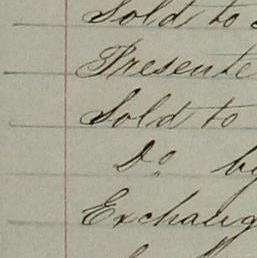 Sold to
Presente
Sold to
Do by
Exchang